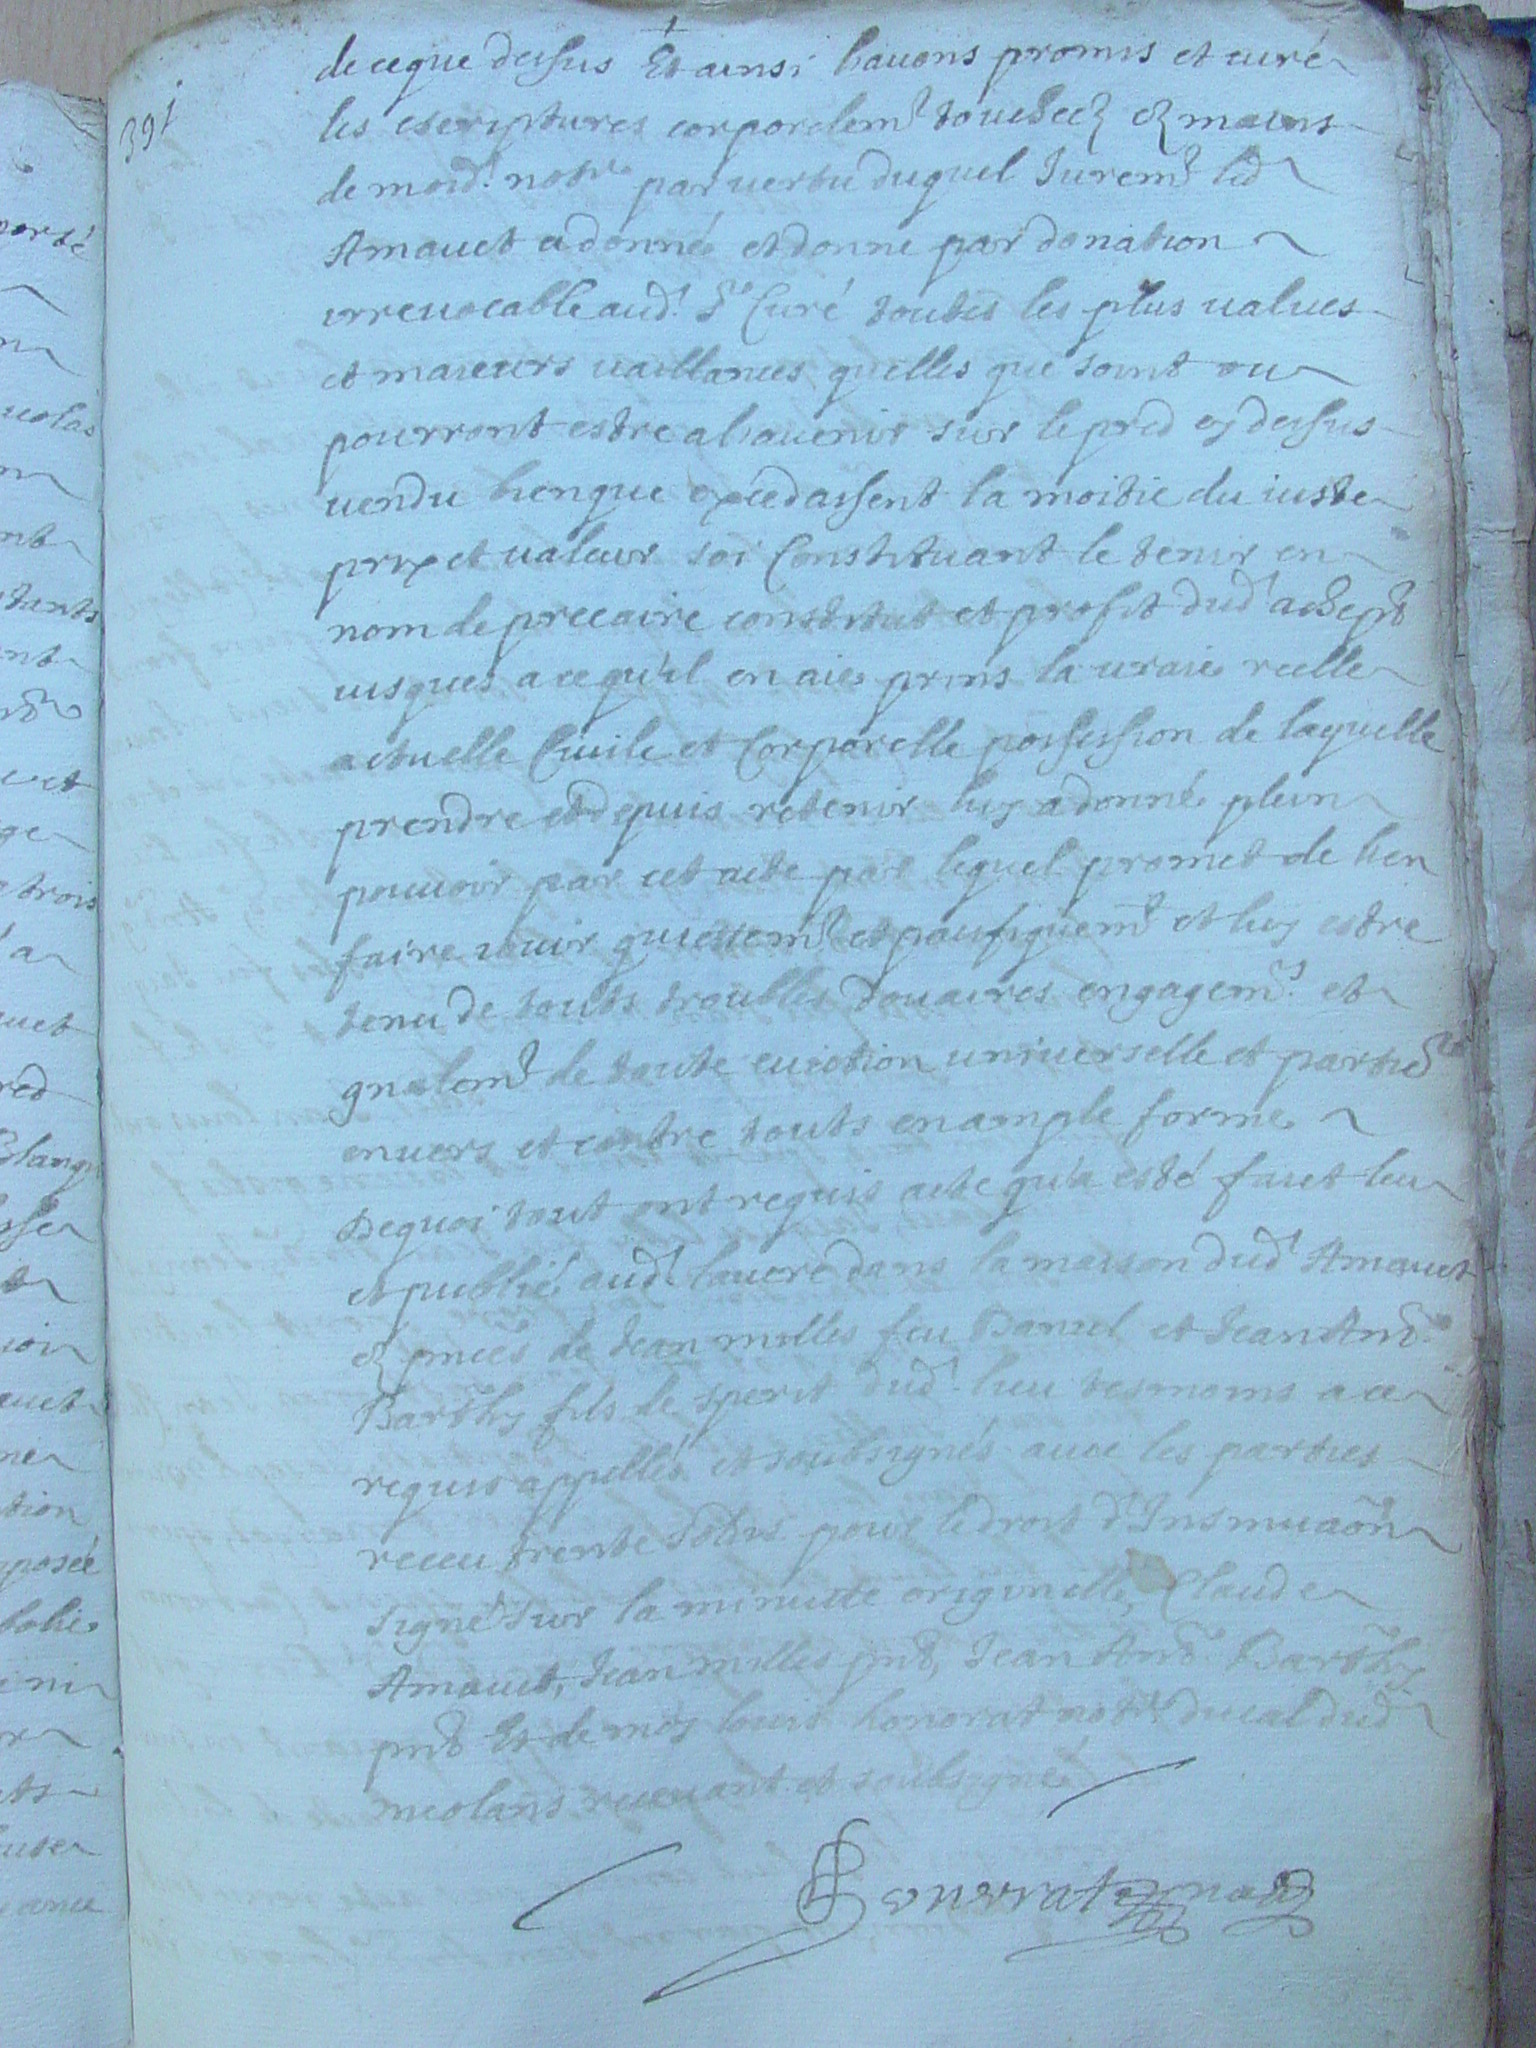 391
de ce que dessus Et ainsi l'auons promis et iuré
les escriptures corporelemt touchées ez mains
de moid. notre par vertu duquel Juremt led
Arnauet a donné et donne par donation
irreuocable aud. Sr Curé toutes les plus values
et maieurs uaillances quelles que soint ou
pourront estre a l'auenir sur le pred cy dessus
vendu bien que excedassent la moitie du iuste
prix et valeur soi Constituant le tenir en
nom de precaire constitut et profit dud achept
iusques a ce qu'il en aie prins la uraie reelle
actuelle Ciuile et Corporelle possession de laquelle
prendre et depuis retenir luy a donné plein
pouuoir par cet acte par lequel promet de bien
faire iouir quietemt et pacifiquemt et luy estre
tenu de touts troubles douaires engagemts et
gnalemt de toute euiction uniuerselle et partiere
enuers et contre touts en ample forme
Dequoi tout ont requis acte qu'a esté faict leu
et publié aud. lauere dans la maison dud Arnauet
ez pnces de Jean milles feu Daniel et Jean And
Barthy fils de sperit dud. lieu tesmoins a ce
requis appellés et soubsignés auec les parties
receu trente sols pour le droit d'Insinuaon
signé sur la minutte originelle, Claude
Arnauet, Jean milles pnt, Jean And Barthy
pnt Et de moy louis honorat notre ducal dud
meolans receuant et soubsigné
honnorat na
porté
colas
tants
nt
trois
a
uet
red
sse
ioi
tion
posée
ni
ance